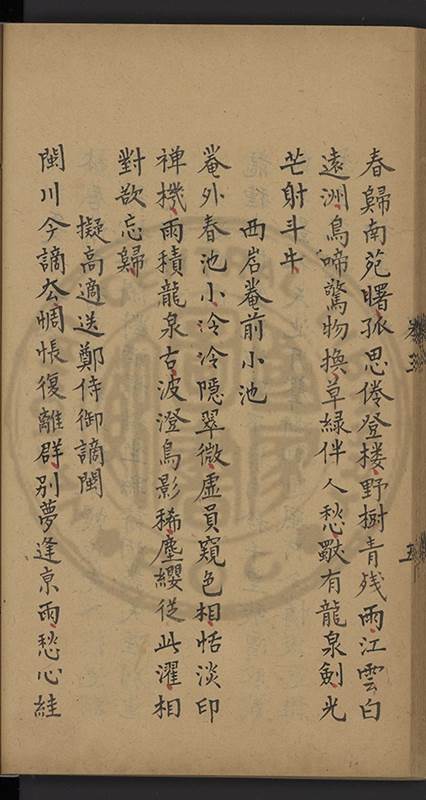 春歸南苑曙孤思倦登楼野樹青残雨江雲白
遠洲鳥啼驚物換草緑伴人愁歐有龍泉劍光
芒射斗牛
西岩菴前小池
菴外春池小泠泠隱翠微虛員窺色相恬淡印
禅機雨積龍泉古波澄鳥影稀塵纓從此濯相
對欲忘歸
擬高適送鄭侍御謫閩
閩川今謫厺惆悵復離群別夢逢京雨愁心絓
卷三
五